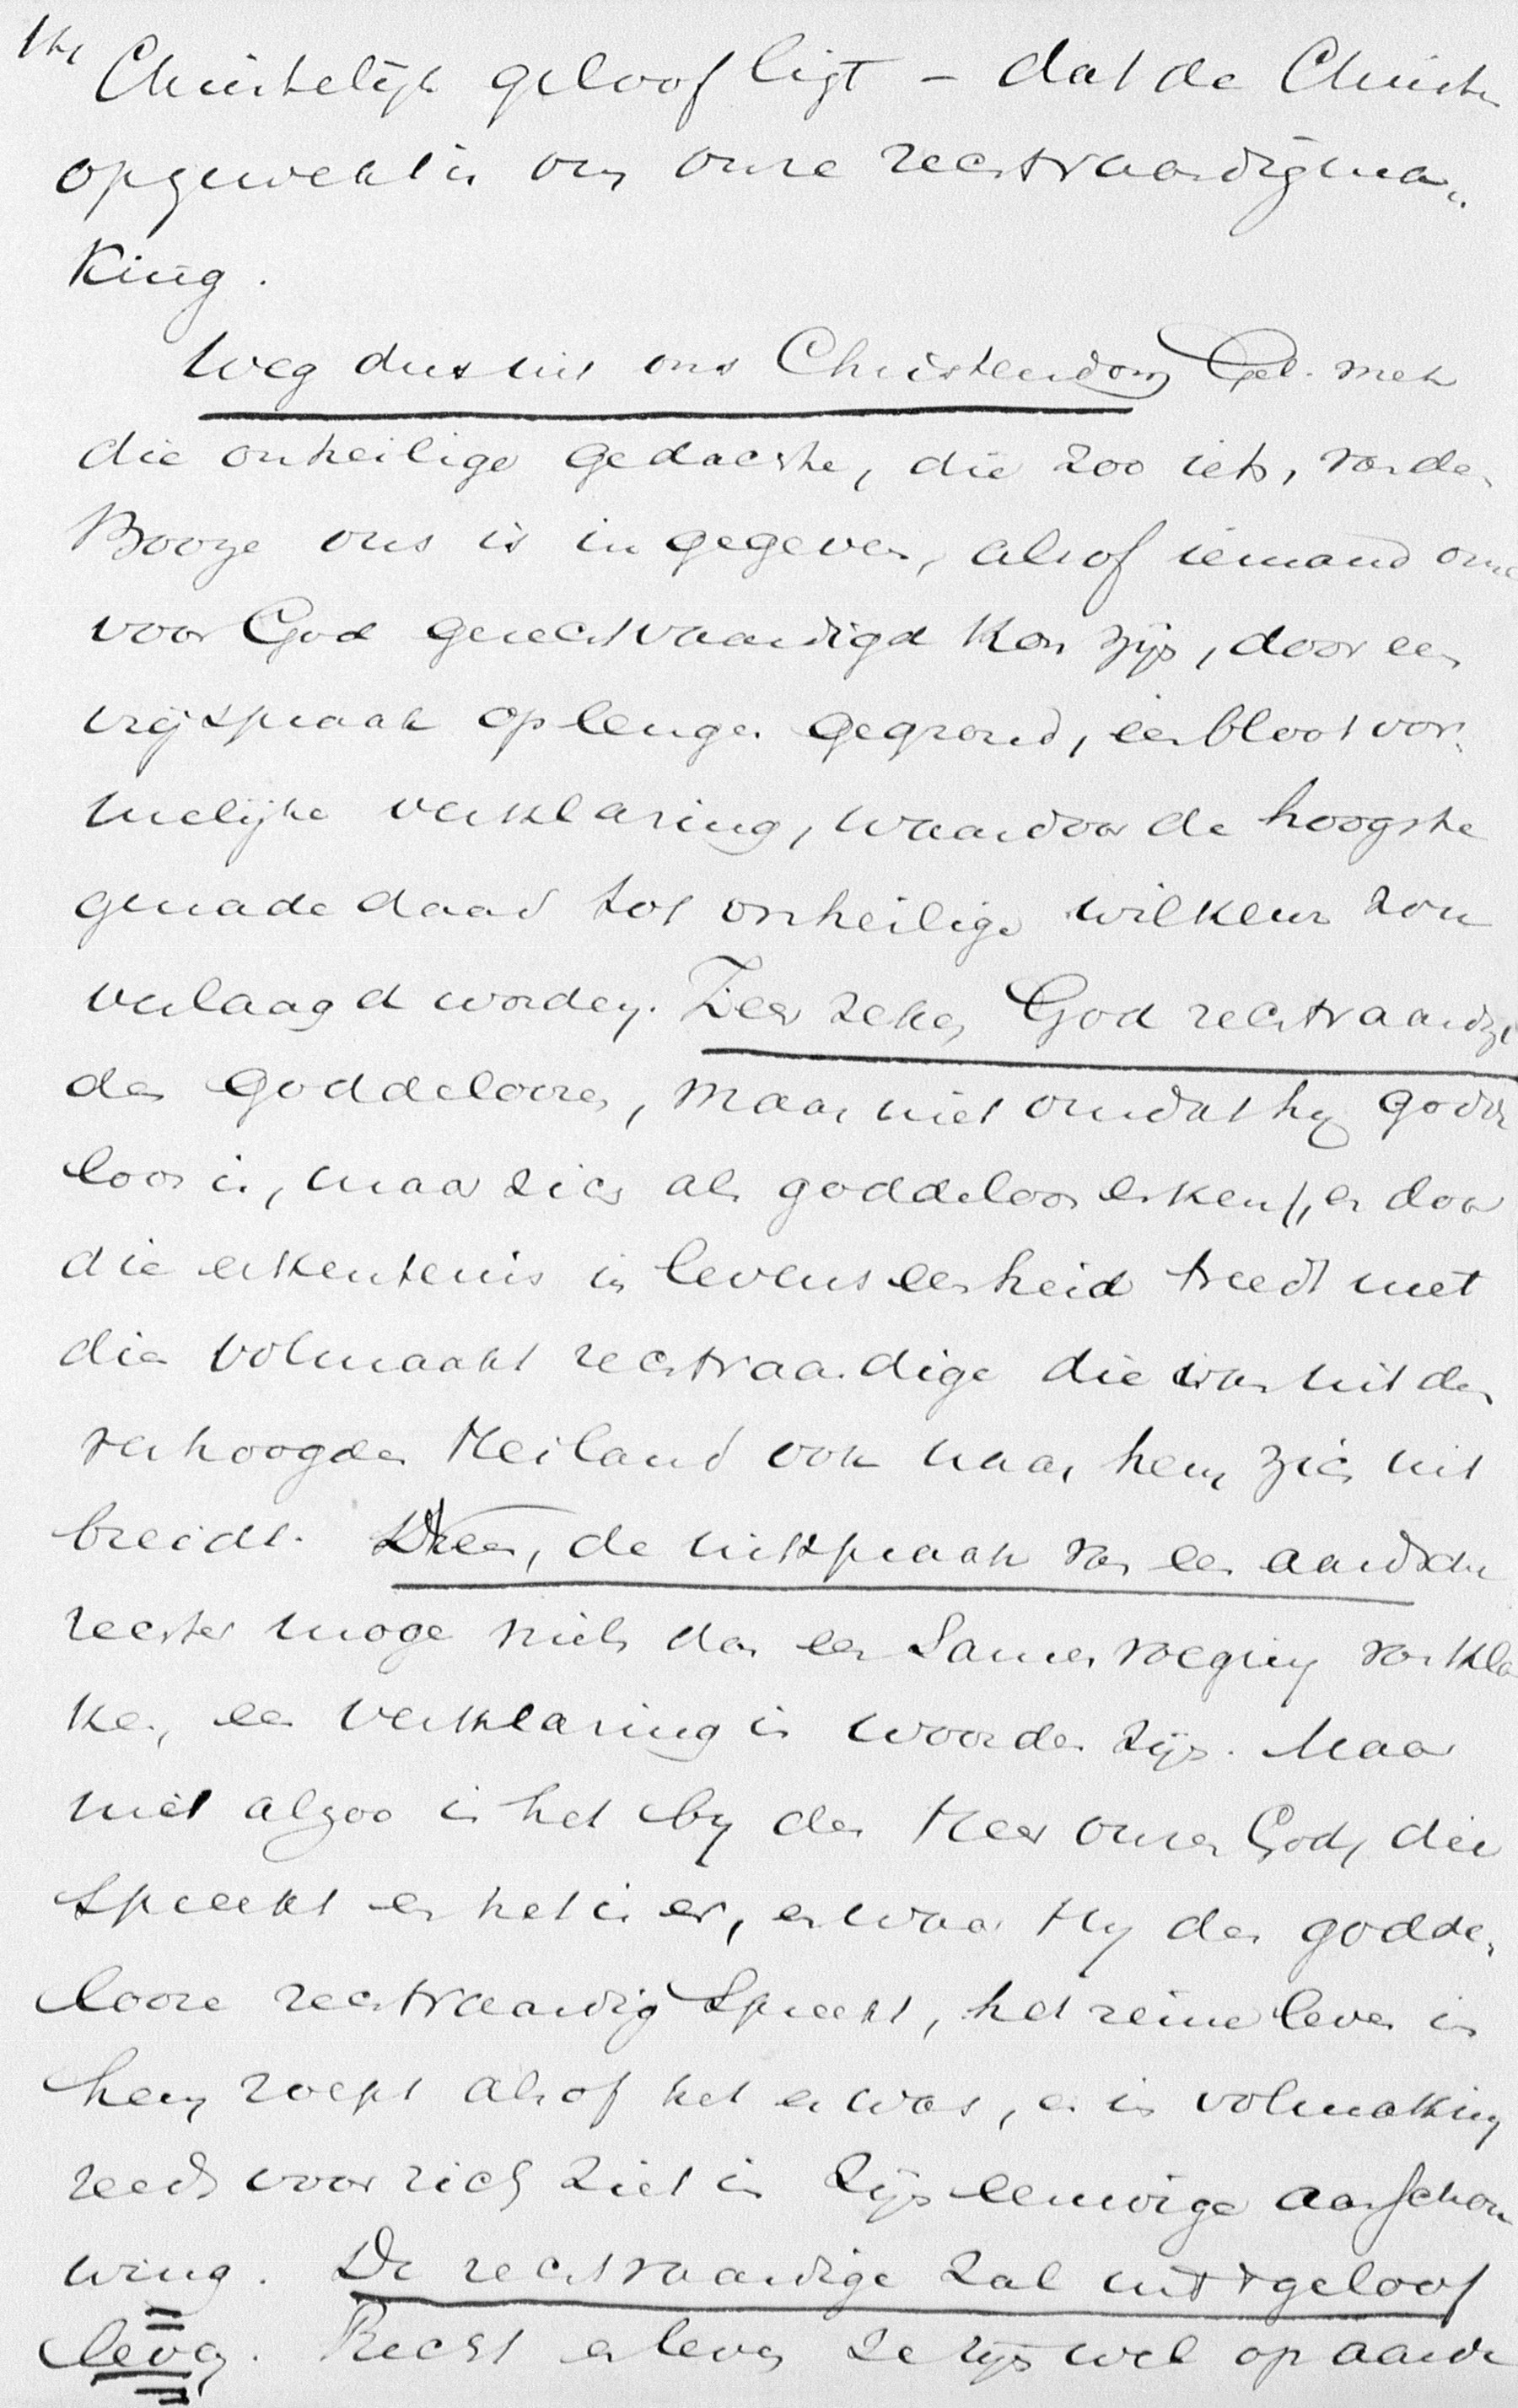 the Christelijk geloof ligt – dat de Christus
opgewekt is om onze rechtvaardigma„
king.
Weg dus uit ons Christendom Gel. met
die onheilige gedachte, die zoo iets, van den
Booze ons is ingegeven, alsof iemand onzer
voor God gerechtvaardigd kon zijn, door een
vrijspraak op leugen gegrond, een bloot vor„
melijke verklaring, waardoor de hoogste
genade daad tot onheilige wilkeur zou
verlaagd worden. Zeer zeker, God rechtvaardigt
den goddeloozen, maar niet omdat hij godde
loos is, maar zich als goddeloos erkent, en door
die erkentenis in levenseenheid treedt met
die volmaakt rechtvaardige die van uit den
verhoogden Heiland ook naar hem zich uit
breidt. Neen, de uitspraak van een aardschen
rechter moge niets dan een samenvoeging van kla
ken, een verklaring in woorden zijn. Maar
niet alzoo is het bij den Heer onzen God, die
spreekt en het is er, en waar Hij den godde„
looze rechtvaardig spreekt, het reine leven in
hem roept alsof het er was, en in volmaking
reeds voor zich ziet in zijn eeuwige aanschou
wing. De rechtvaardige zal uit 't geloof
leven. Recht en leven ze zijn wel op aarde